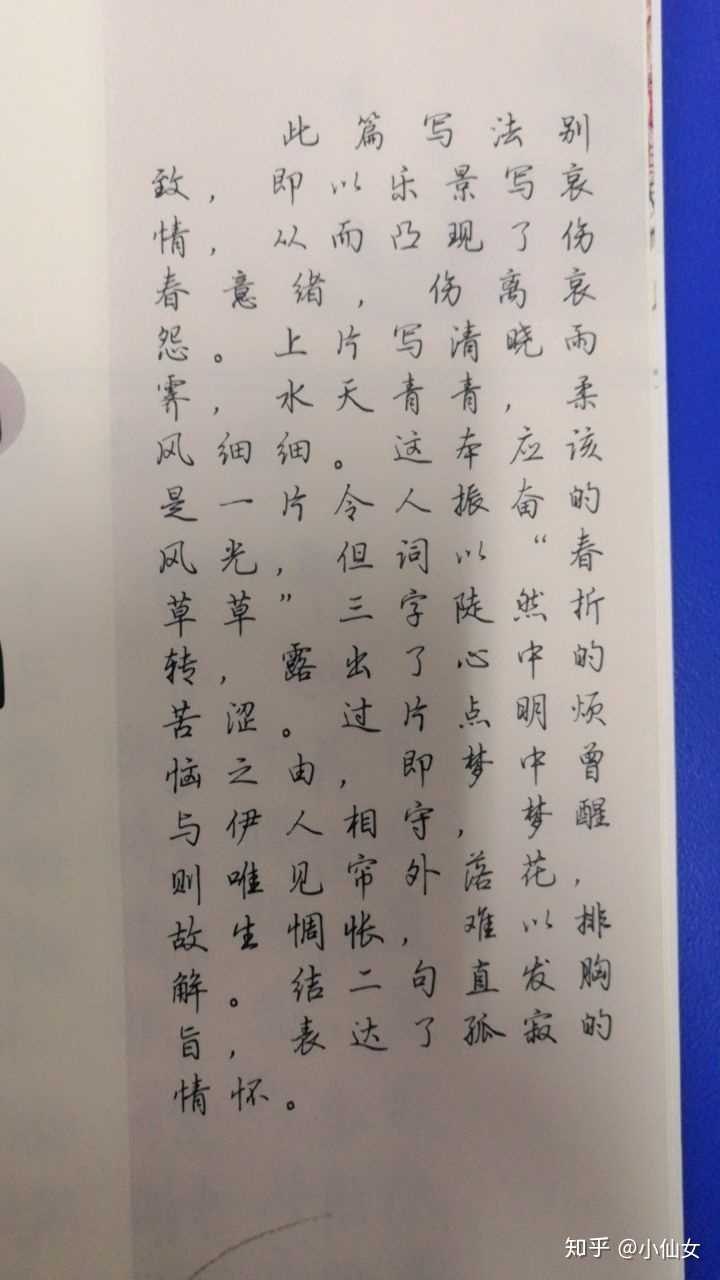 此篇写法别
致，即以乐景写哀
情，从而凸现了伤
春意绪，伤离哀
怨。上片写清晓雨
霁，水天青青，柔
风细细。这本应该
是一片令人振奋的
风光，但词以“春
草草”三字陡然折
转，露出了心中的
苦涩。过片点明烦
恼之由，即梦中曾
与伊人相守，梦醒
则唯见帘外落花，
故生惆怅，难以排
解。结二句直发胸
旨，表达了孤寂的
情怀。
知乎 @小仙女